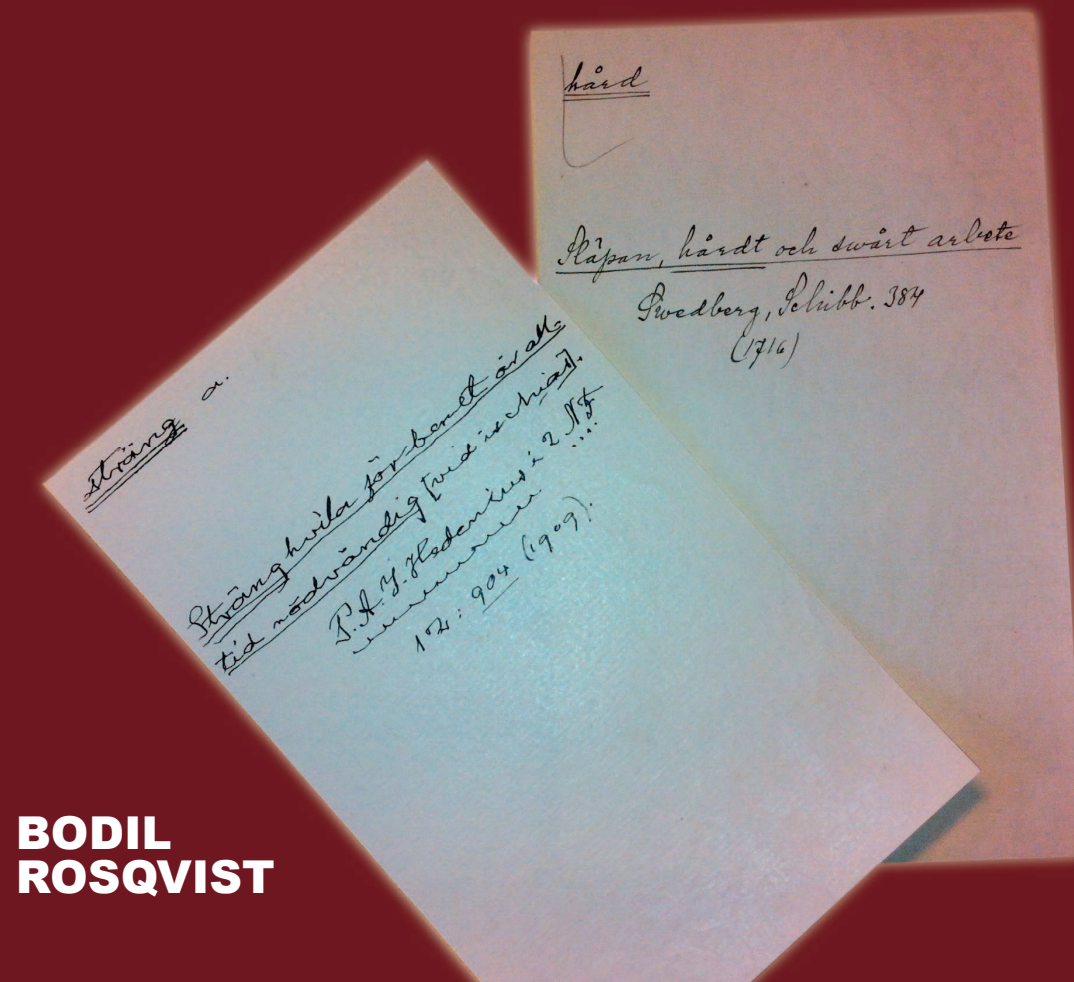 hård
Släpan, hårdt och swårt arbete
Swedberg, Schibb. 384
(1716)
sträng a.
Sträng hvila för benet är all-
tid nödvändig [vid ischias].
P. A. Y. Hedenius i 2 NF
12: 904 (1909).
BODIL
ROSQVIST